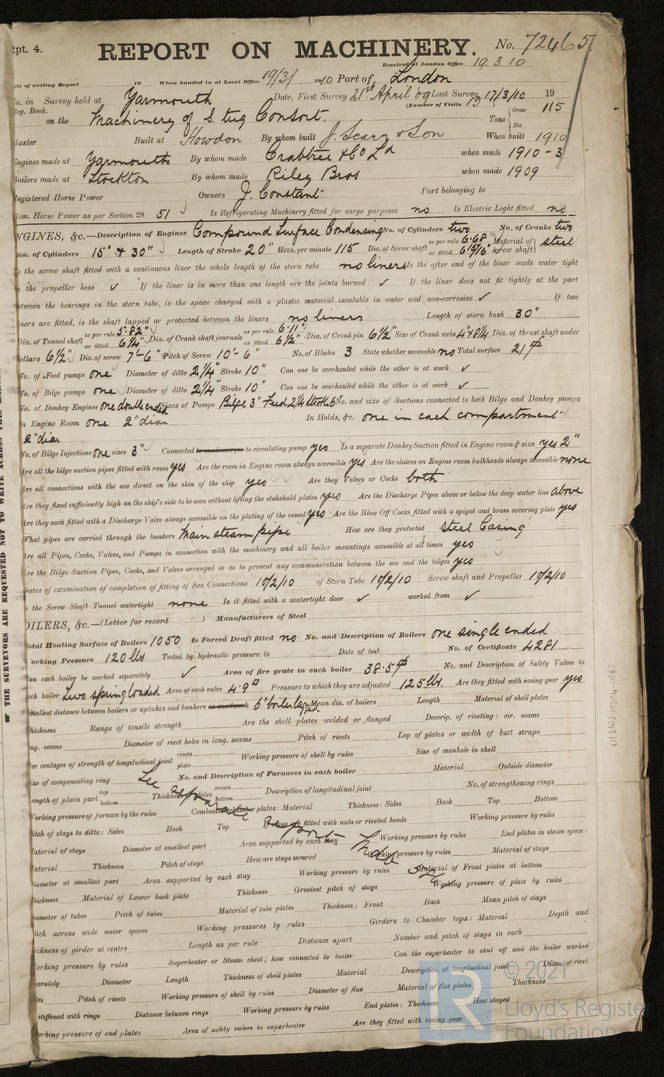 Rpt. 4. REPORT ON MACHINERY. No. 72465
Received at London Office 19.3.10
Date of writing Report 19 When handed in at Local Office 19/3/ 1910 Port of London
No. in Survey held at Yarmouth Date, First Survey 21st April 09 Last Survey 17/3/10 19
Reg. Book. (Number of Visits 13)
on the Machinery of S. tug Consort. Tons Gross 115 Net
Master Built at Howdon By whom built J. Scarr & Son When built 1910
Engines made at Yarmouth By whom made Crabtree & Co Ld when made 1910 - 3
Boilers made at Stockton By whom made Riley Bros when made 1909
Registered Horse Power Owners J. Constant Port belonging to
Nom. Horse Power as per Section 28 51 Is Refrigerating Machinery fitted for cargo purposes no Is Electric Light fitted no
ENGINES, &c.—Description of Engines Compound Surface Condensing No. of Cylinders two No. of Cranks two
Dia. of Cylinders 15" & 30" Length of Stroke 20" Revs. per minute 115 Dia. of Screw shaft as per rule 6.68" as fitted 6 15/16" Material of screw shaft) steel
Is the screw shaft fitted with a continuous liner the whole length of the stern tube no liners Is the after end of the liner made water tight
in the propeller boss ✓ If the liner is in more than one length are the joints burned ✓ If the liner does not fit tightly at the part
between the bearings in the stern tube, is the space charged with a plastic material insoluble in water and non-corrosive ✓ If two
liners are fitted, is the shaft lapped or protected between the liners no liners Length of stern bush 30"
Dia. of Tunnel shaft as per rule 5.82" as fitted 6 1/4" Dia. of Crank shaft journals as per rule 6.11" as fitted 6 1/2" Dia. of Crank pin 6 1/2" Size of Crank webs 4 x 8 1/4 Dia. of thrust shaft under
collars 6 1/2" Dia. of screw 7'-6" Pitch of Screw 10'-6" No. of Blades 3 State whether moveable no Total surface 21
No. of Feed pumps one Diameter of ditto 2 1/4" Stroke 10" Can one be overhauled while the other is at work ✓
No. of Bilge pumps one Diameter of ditto 2 1/4" Stroke 10" Can one be overhauled while the other is at work ✓
No. of Donkey Engines one double ended Sizes of Pumps Bilge 3" Feed 2 1/4 stroke 6 No. and size of Suctions connected to both Bilge and Donkey pumps
In Engine Room one 2" dia In Holds, &c. one in each compartment
2" dia
No. of Bilge Injections one sizes 3" Connected to circulating pump yes Is a separate Donkey Suction fitted in Engine room & size yes 2"
Are all the bilge suction pipes fitted with roses yes Are the roses in Engine room always accessible yes Are the sluices on Engine room bulkheads always accessible none
Are all connections with the sea direct on the skin of the ship yes Are they Valves or Cocks both
Are they fixed sufficiently high on the ship's side to be seen without lifting the stokehold plates yes Are the Discharge Pipes above or below the deep water line above
Are they each fitted with a Discharge Valve always accessible on the plating of the vessel yes Are the Blow Off Cocks fitted with a spigot and brass covering plate yes
What pipes are carried through the bunkers main steam pipe How are they protected steel Casing
Are all Pipes, Cocks, Valves, and Pumps in connection with the machinery and all boiler mountings accessible at all times yes
Are the Bilge Suction Pipes, Cocks, and Valves arranged so as to prevent any communication between the sea and the bilges yes
Dates of examination of completion of fitting of Sea Connections 10/2/10 of Stern Tube 10/2/10 Screw shaft and Propeller 10/2/10
Is the Screw Shaft Tunnel watertight none Is it fitted with a watertight door ✓ worked from ✓
BOILERS, &c.—(Letter for record ) Manufacturers of Steel
Total Heating Surface of Boilers 1050 Is Forced Draft fitted no No. and Description of Boilers one single ended
Working Pressure 120 lbs Tested by hydraulic pressure to Date of test No. of Certificate 4281
Can each boiler be worked separately ✓ Area of fire grate in each boiler 38.5 No. and Description of Safety Valves to
each boiler two spring loaded Area of each valve 4.9 Pressure to which they are adjusted 125 lbs. Are they fitted with easing gear yes
Smallest distance between boilers or uptakes and bunkers 6" boiler lagged Mean dia. of boilers Length Material of shell plates
Thickness Range of tensile strength Are the shell plates welded or flanged Descrip. of riveting: cir. seams
long. seams Diameter of rivet holes in long. seams Pitch of rivets Lap of plates or width of butt straps
Per centages of strength of longitudinal joint rivets plate Working pressure of shell by rules Size of manhole in shell
Size of compensating ring No. and Description of Furnaces in each boiler Material Outside diameter
Length of plain part top bottom Thickness of plates crown bottom Description of longitudinal joint No. of strengthening rings
Working pressure of furnace by the rules Combustion chamber plates: Material Thickness: Sides Back Top Bottom
See separate report
Pitch of stays to ditto: Sides Back Top If stays are fitted with nuts or riveted heads Working pressure by rules
Material of stays Diameter at smallest part Area supported by each stay Working pressure by rules End plates in steam space:
Material Thickness Pitch of stays How are stays secured Working pressure by rules Material of stays
Diameter at smallest part Area supported by each stay Working pressure by rules Material of Front plates at bottom
Thickness Material of Lower back plate Thickness Greatest pitch of stays Working pressure of plate by rules
Diameter of tubes Pitch of tubes Material of tube plates Thickness: Front Back Mean pitch of stays
Pitch across wide water spaces Working pressures by rules Girders to Chamber tops: Material Depth and
thickness of girder at centre Length as per rule Distance apart Number and pitch of stays in each
Working pressure by rules Superheater or Steam chest; how connected to boiler Can the superheater be shut off and the boiler worked
separately Diameter Length Thickness of shell plates Material Description of longitudinal joint Diam. of rivet
holes Pitch of rivets Working pressure of shell by rules Diameter of flue Material of flue plates Thickness
If stiffened with rings Distance between rings Working pressure by rules End plates: Thickness How stayed
Working pressure of end plates Area of safety valves to superheater Are they fitted with easing gear
OF THE SURVEYORS ARE REQUESTED NOT TO WRITE ACROSS THE
© 2021
Lloyd's Register
Foundation